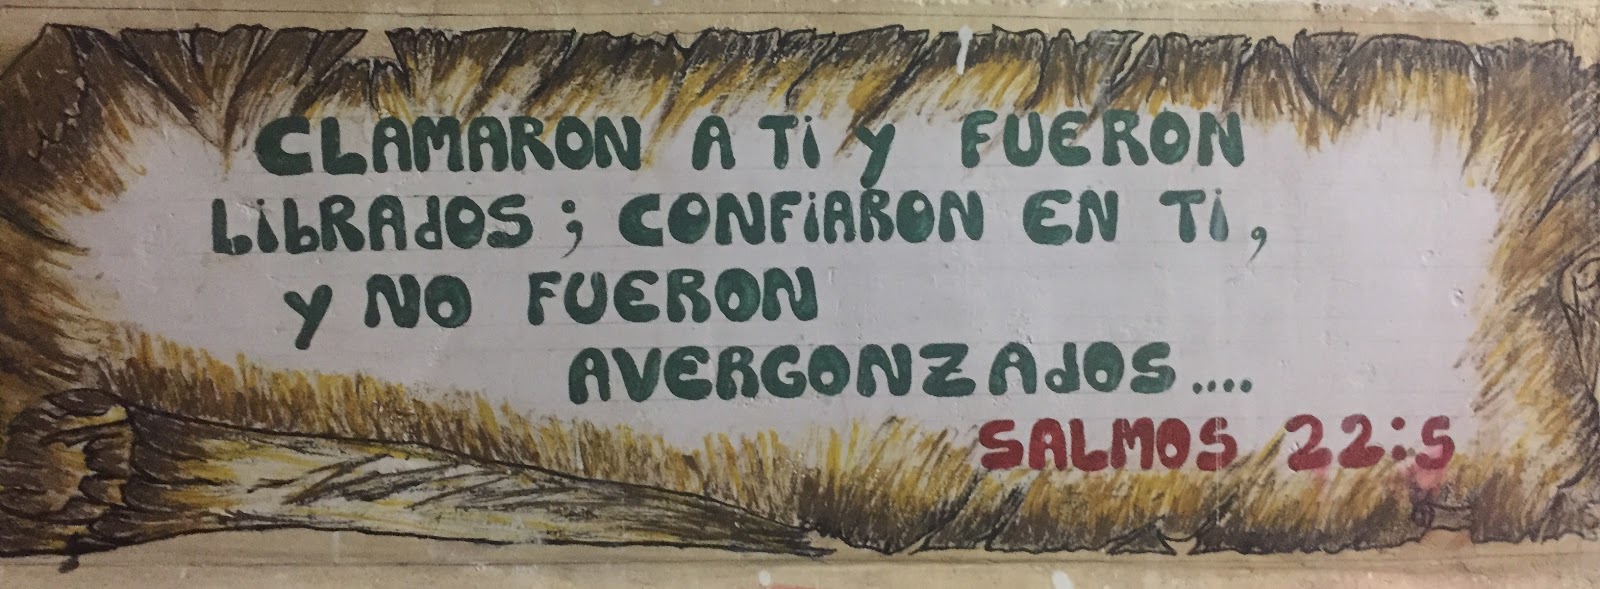 CLAMARON A Ti y FUERON
LibRAdOS; CONFiARON EN Ti,
y NO FUERON
AVERGONZAdOS....
SALMOS 22:5